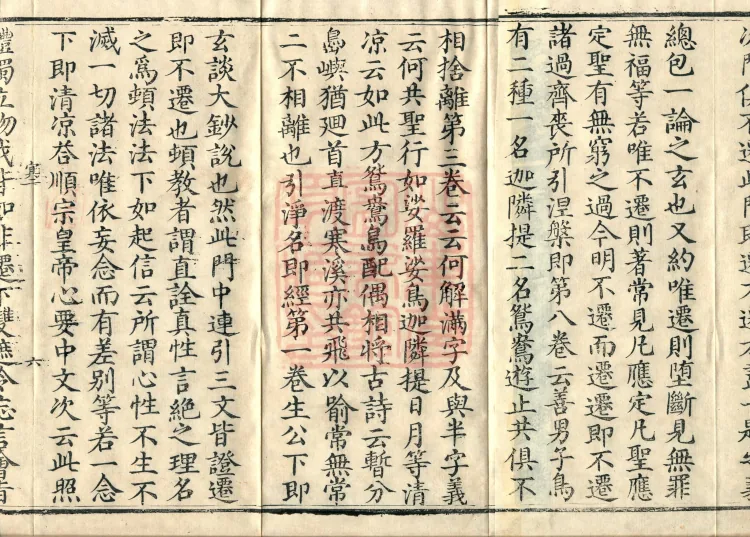 總包一論之玄也又約唯遷則墮斷見無罪
無福等若唯不遷則著常見凡應定凡聖應
定聖有無窮之過今明不遷而遷遷即不遷
諸過齊喪所引涅槃即第八卷云善男子鳥
有二種一名迦隣提二名鴛鴦遊止共俱不
相捨離第三卷云云何解滿字及與半字義
云何共聖行如娑羅娑鳥迦隣提日月等清
凉云如此方鴛鴦鳥配偶相將古詩云暫分
島嶼猶廻首直渡寒溪亦共飛以喻常無常
二不相離也引淨名即經第一卷生公下即
玄談大鈔說也然此門中連引三文皆證遷
即不遷也頓教者謂直詮真性言絕之理名
之爲頓法法下如起信云所謂心性不生不
滅一切諸法唯依妄念而有差別等若一念
下即清凉荅順宗皇帝心要中文次云此照
六
體獨立物我皆如非遷下雙